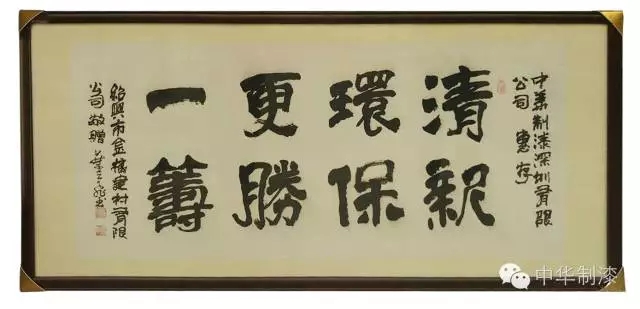 中華制漆深圳有限
公司 惠存
清新
環保
更勝
一籌
紹興市金建材有限
公司敬贈 書
中华制漆